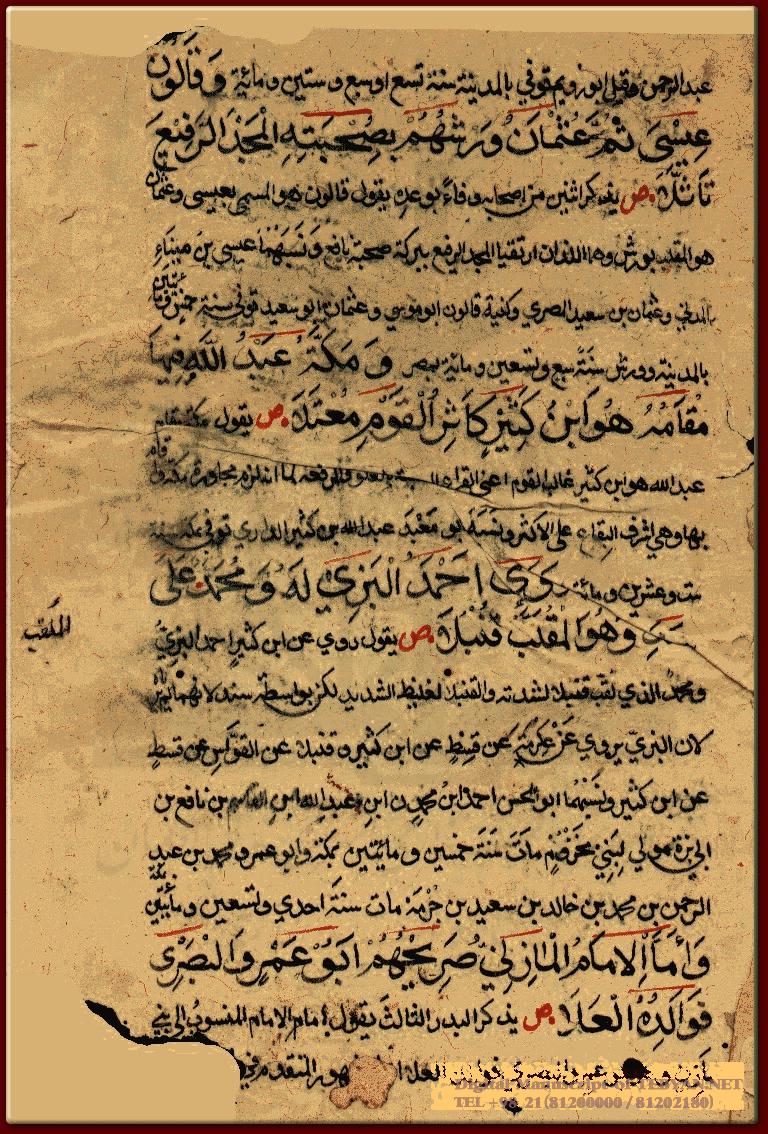 عبد الرحمن وقيل ابو رويم توفي بالمدينة سنة تسع او سبع وستين ومائة وَقَالُونُ
عِيسَى ثُمَّ عُثْمَانُ وَرْشُهُمْ بِصُحْبَتِهِ الْمَجْدَ الرَّفِيعَ
تَأَثَّلَا ص يذكر اثنين من اصحابه وفاء بوعده يقول قالون هو المسمى بعيسى وعثمان
هو الملقب بورش وهما اللذان ارتقيا المجد الرفيع ببركة صحبة نافع وَنَسَبُهُمَا عيسى بن ميناء
المدني وعثمان بن سعيد المصري وكنية قالون ابو موسى وعثمان ابو سعيد توفي سنة خمس ومائتين
بالمدينة وورش سنة سبع وتسعين ومائة بمصر وَمَكَّةُ عَبْدُ اللَّهِ فِيهَا
مُقَامُهُ هُوَ ابْنُ كَثِيرٍ كَاثِرُ الْقَوْمِ مُعْتَلَا ص يقول مكة مقام
عبد الله هو ابن كثير غالب القوم اعني القراء لما انه لزم مجاورة مكة
بها وهي اشرف البقاع على الاكثر ونسبه ابو معبد عبد الله بن كثير الداري توفي بمكة سنة
وعشرين ومائة رَوَى أَحْمَدُ الْبَزِّي لَهُ وَمُحَمَّدٌ عَلَى
سَنَدٍ وَهُوَ الْمُلَقَّبُ قُنْبُلَا ص يقول روي عن ابن كثير احمد البزي
الملقب
ومحمد الذي لقب قنبلا لشدته والقنبل الغليظ الشديد لكن بواسطة سند لانهما
لان البزي يروي عن عكرمة عن قسط عن ابن كثير وقنبلا عن القواس عن قسط
عن ابن كثير ونسبهما ابو الحسن احمد ابن محمد بن عبد الله ابن القاسم بن نافع بن
ابي بزة مولى لبني مخزوم مات سنة خمسين ومايتين بمكة وابو عمرو محمد بن عبد
الرحمن بن محمد بن خالد بن سعيد بن جرجة مات سنة احدي وتسعين ومأيتين
وَأَمَّا الْإِمَامُ الْمَازِنِيُّ صَرِيحُهُمْ أَبُو عَمْرٍو الْبَصْرِي
فَوَالِدُهُ الْعَلَا ص يذكر البدر الثالث يقول امام الامام المنسوب الى بني
مازن وهو ابو عمرو البصري فوالده العلاء المشهور المتقدم في
Digital Manuscript of TEBYAN.NET
TEL +98 21 (81200000 / 81202180)